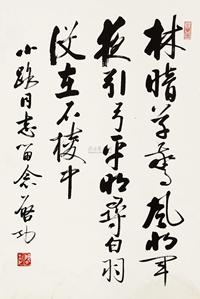 林暗草惊风将军
夜引弓平明寻白羽
没在石棱中
小路同志留念 启功